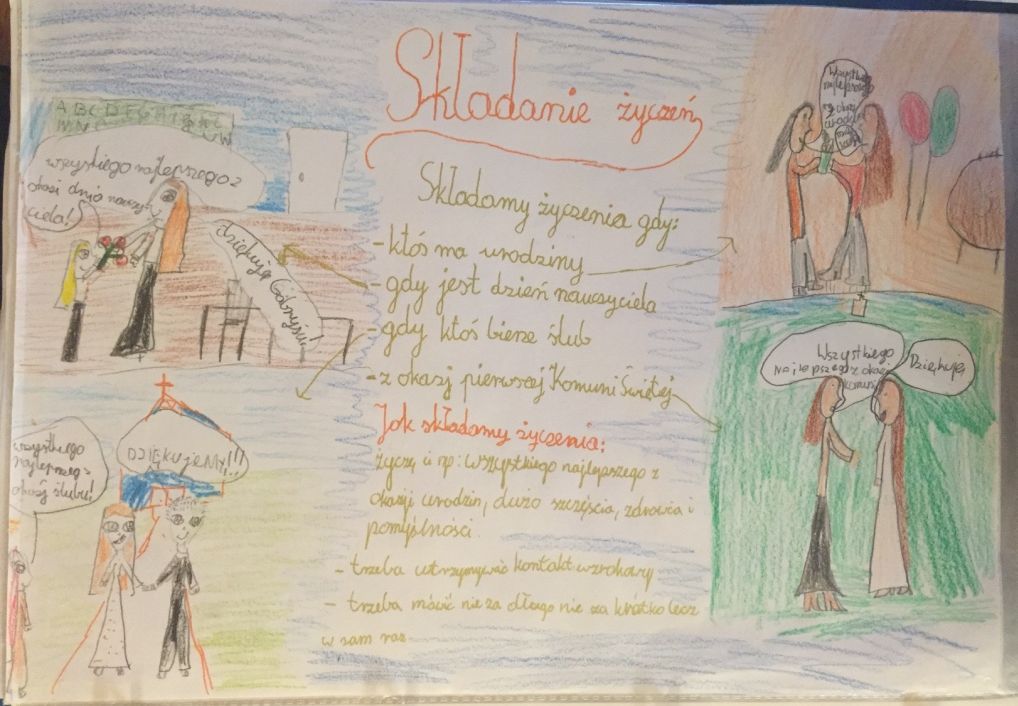 Składanie życzeń
Składamy życzenia gdy:
- ktoś ma urodziny
- gdy jest dzień nauczyciela
- gdy ktoś bierze ślub
- z okazj pierwszej Komuni Świętej
Jak składamy życzenia:
życzę ci np: Wszystkiego najlepszego z
okazji urodzin, dużo szczęścia, zdrowia i
pomyślności.
- trzeba utrzymywać kontakt wzrokowy
- trzeba mówić nie za długo nie za krótko lecz
w sam raz
A B C D E F G H I J K L
M N U W
wszystkiego najlepszego z
okazi dnia nauczy-
ciela!
dziękuję
wszystkiego
najlepszego z
okazj ślubu!
DZIĘKUJEMY!!!
Wszystkiego
najlepszego
z okazj
urodzin
Wszystkiego
Najlepszego z okazj
komuni
Dziękuję